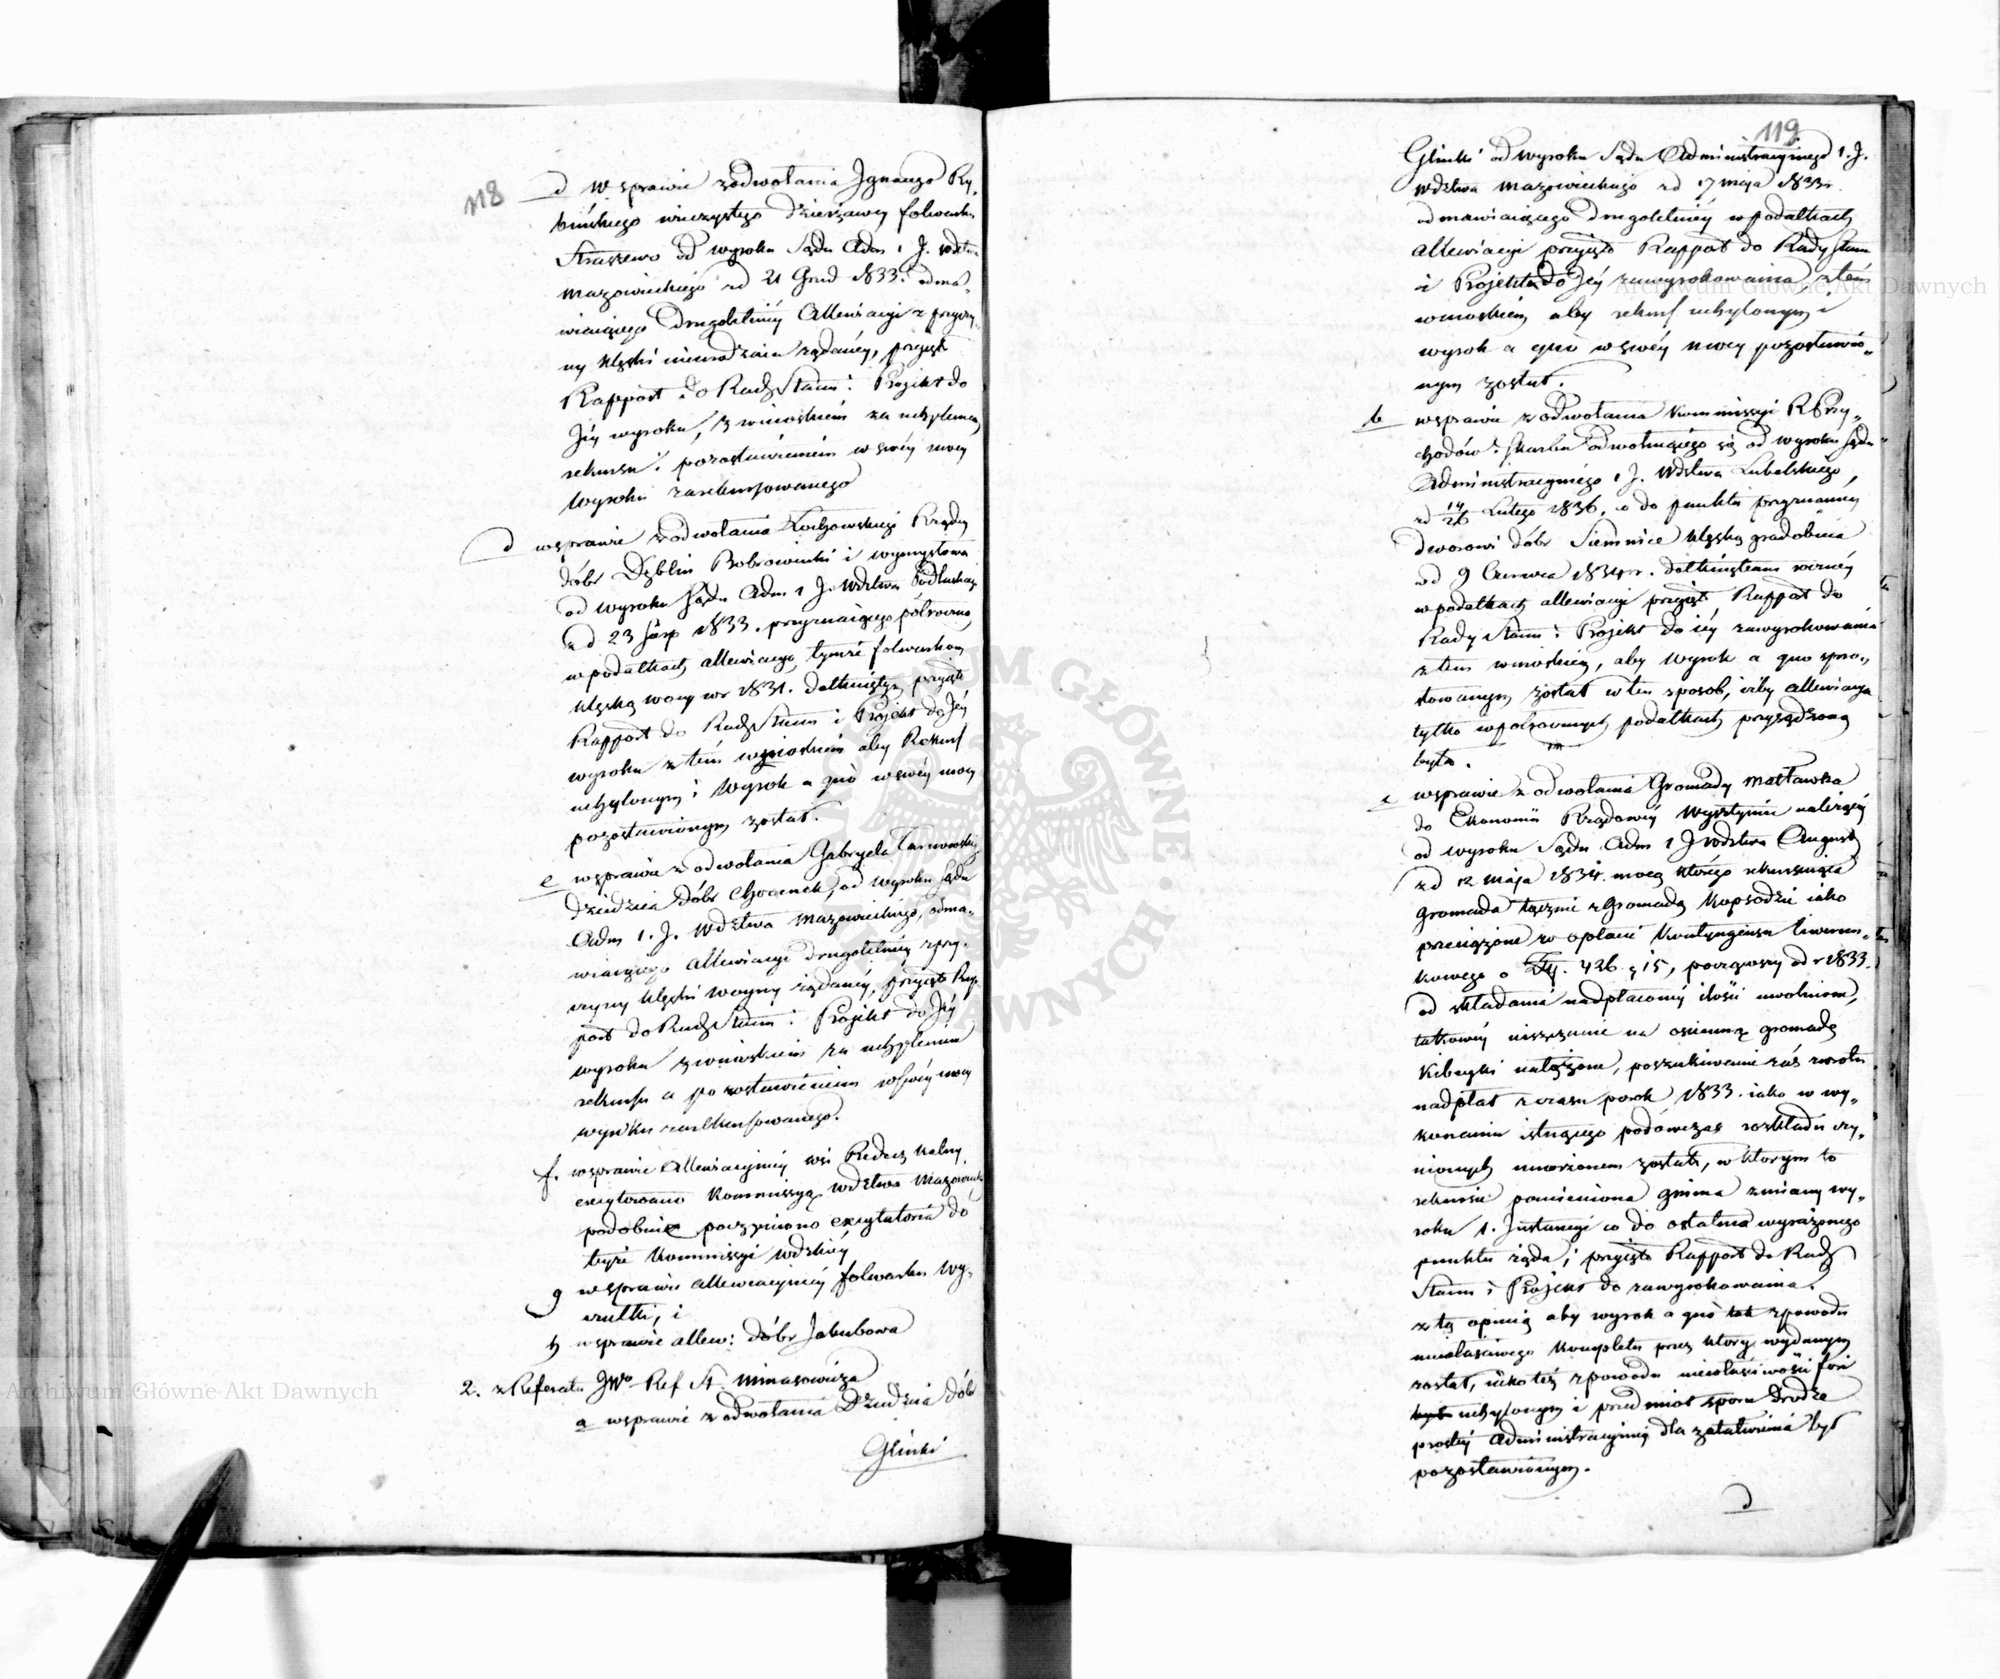 118
d w sprawie z odwołania Ignacego Ry,
bińskiego wieczystego dzierżawcy folwarku
Straszewo od wyroku Sądu Adm 1 J. wdztwa
Mazowieckiego zd 21 Grud 1833. odma,
wiaiącego drugoletniey Allewiacyi z przyczy,
ny klęski nieurodzaiu żądaney, przyięto
Rapport do Rady Stanu i Projekt do
Jéy wyroku, z wnioskiem za uchyleniem
rekursu i pozostawieniem w swéy mocy
Wyroku zarekursowanego
d w sprawie z odwołania Rządcy
dóbr Dęblin Bobrowniki i Wymysłowa
od wyroku Sądu Adm 1 J. Wdztwa Podlaskiego
zd 23 Sierp 1833. przyznaiącego półroczną
w podatkach allewiacyę tymże folwarkom
klęską woyny wr 1831. dotkniętym przyięto
Rapport do Rady Stanu i Projekt do Jéy
wyroku z tém wnioskiem aby Rekurs
uchylonym i Wyrok a quo w swéy mocy
pozostawionym został.
e w sprawie z odwołania Gabryela Tarnowskiego
dziedzica dóbr Chocenek, od wyroku Sądu
Adm 1. J. Wdztwa Mazowieckiego, odma,
wiaiącego Allewiacyi drugoletniey z przy,
czyny klęski woyny żądaney, przyięto Rap,
port do Rady Stanu i Projekt do Jéy
wyroku z wnioskiem za uchyleniem
rekursu a pozostawieniem w swéy mocy
wyroku zarekursowanego.
f. w sprawie Allewiacyjney wsi
excytowano Kommissyą wdztwa Mazowiec
podobnie poczyniono excytatoria do
teyże Kommissyi wdzkiéy
g w sprawie allewiacyjney folwarku Wy,
czułki, i
h w sprawie allew: dóbr Jakubowa
2. z Referatu JWo Ref St. Minasowicza
a w sprawie z odwołania Dziedzica dób
Glinki
119
Glinki od wyroku Sądu Administracyjnego 1. J.
Wdztwa Mazowieckiego zd 17 maja 1833r.
odmawiaiącego drugoletniey w podatkach
allewiacyi przyięto Rapport do Rady Stanu
i Projekt do Jéy zawyrokowania z tém
wnioskiem aby rekurs uchylonym i
wyrok a quo w swéy mocy pozostawio,
nym został.
b w sprawie z odwołania Kommissyi R Przy,
chodów i Skarbu odwołuiącego się od wyroku Sądu
Administracyjnego 1 J. Wdztwa Lubelskiego,
zd 14/26 Lutego 1836. co do punktu przyznaney
dworowi dóbr Siemnice klęską gradobicia
od 9 Czerwca 1834r. dotkniętemu roczney
w podatkach allewiacyi przyięto Rapport do
Rady Stanu i Projekt do iéy zawyrokowania
z tém wnioskiem, aby Wyrok a quo spro,
stowanym został w ten sposob, iżby allewiacya
tylko w półrocznych podatkach przysądzoną
była.
c w sprawie z odwołania Gromady Matławka
do Ekonomii Rządowéy Wysztyniec należącéy
od wyroku Sądu Adm 1 J wdztwa August
zd 12 Maja 1834. mocą którego rekursuiąca
gromada łącznie z Gromadą Kopsodzie iako
przeciążone w opłacie kontyngensu liwerun,
kowego o Złp. 426 g 15, począwszy od r 1833.
od składania nadpłaconey ilości uwolnione,
takowey uiszczenie na ościenną gromadę
Kibeyki nałożone, poszukiwanie zaś zwrotu
nadpłat z czasu po rok 1833. iako w wy,
konaniu istnącego podówczas rozkładu czy,
nionych umorzonem zostało, w którym to
rekursie pomieniona gmina zmiany wy,
roku 1. Instancyi co do ostatnio wyrażonego
punktu żąda, i przyięto Rapport do Rady
Stanu i Projekt do zawyrokowania.
z tą opinią aby wyrok a quo tak z powodu
niewłaściwego Kompletu przez który wydanym
został, iako téż z powodu niewłaściwości fori
uchylonym i przedmiot sporu drodze
prostéy Administracyjnéy dla załatwienia był
pozostawionym.
d